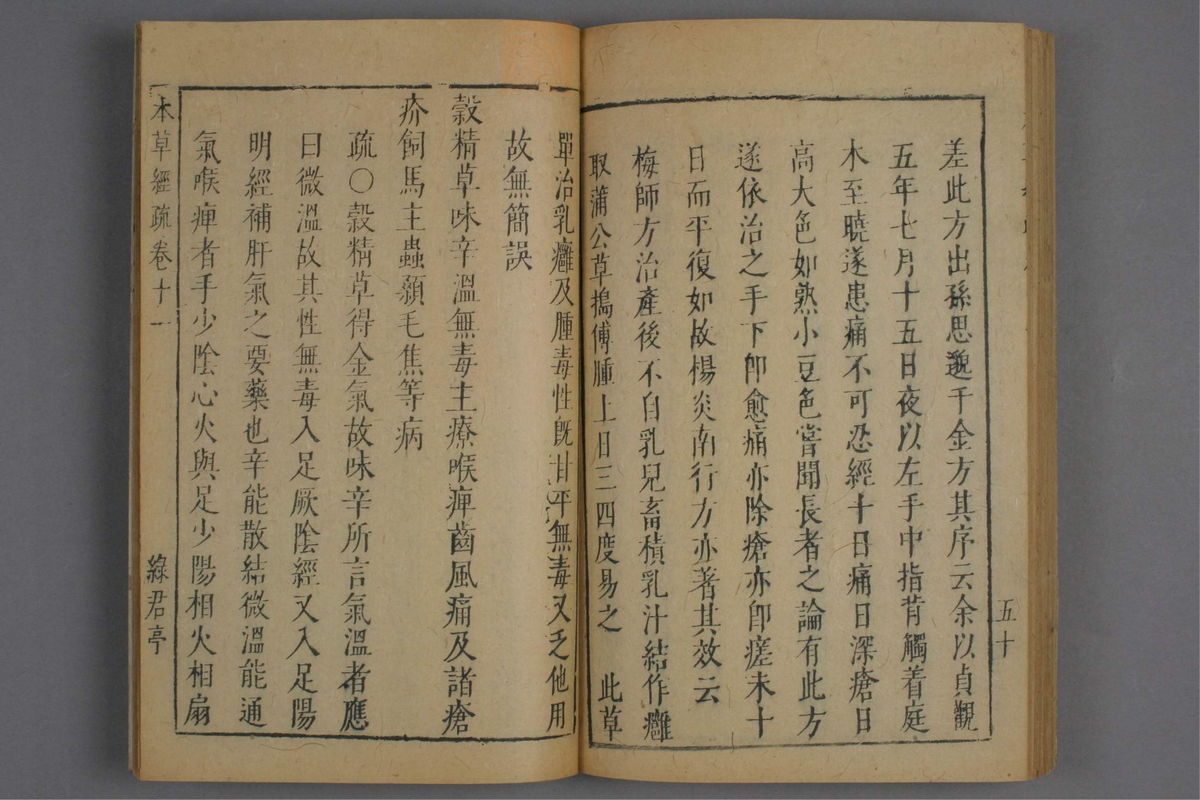 差此方出孫思邈千金方其序云余以貞觀
五年七月十五日夜以左手中指背觸着庭
木至曉遂患痛不可忍經十日痛日深瘡日
高大色如熟小豆色嘗聞長者之論有此方
遂依治之手下卽愈痛亦除瘡亦卽瘥未十
日而平復如故楊炎南行方亦著其效云
梅師方治產後不自乳兒畜積乳汁結作癰
取蒲公草搗傅腫上日三四度易之 此草
五十
單治乳癰及腫毒性旣甘平無毒又乏他用
故無簡誤
穀精草味辛溫無毒主療喉痺齒風痛及諸瘡
疥飼馬主蟲顙毛焦等病
疏○穀精草得金氣故味辛所言氣溫者應
曰微溫故其性無毒入足厥陰經又入足陽
明經補肝氣之要藥也辛能散結微溫能通
氣喉痺者手少陰心火與足少陽相火相扇
本草經疏卷十一
綠君亭